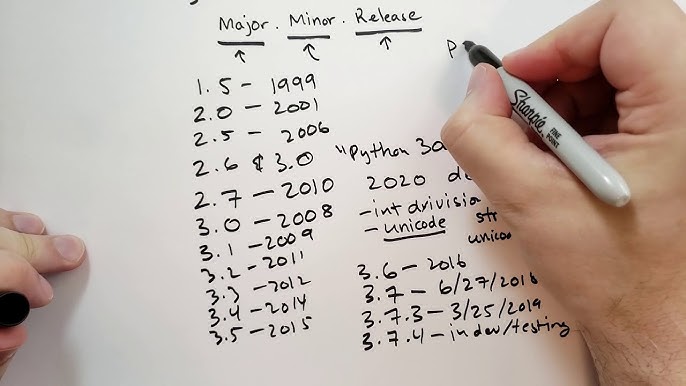 Major . Minor . Release
P
1.5 - 1999
2.0 - 2001
2.5 - 2006
2.6 & 3.0
2.7 - 2010
3.0 - 2008
3.1 - 2009
3.2 - 2011
3.3 - 2012
3.4 - 2014
3.5 - 2015
"Python 30
2020 de
- int drivision
- unicode str
unico
3.6 - 2016
3.7 - 6/27/2018
3.7.3 - 3/25/2019
3.7.4 - in dev/testing
Sharpie
FINE POINT